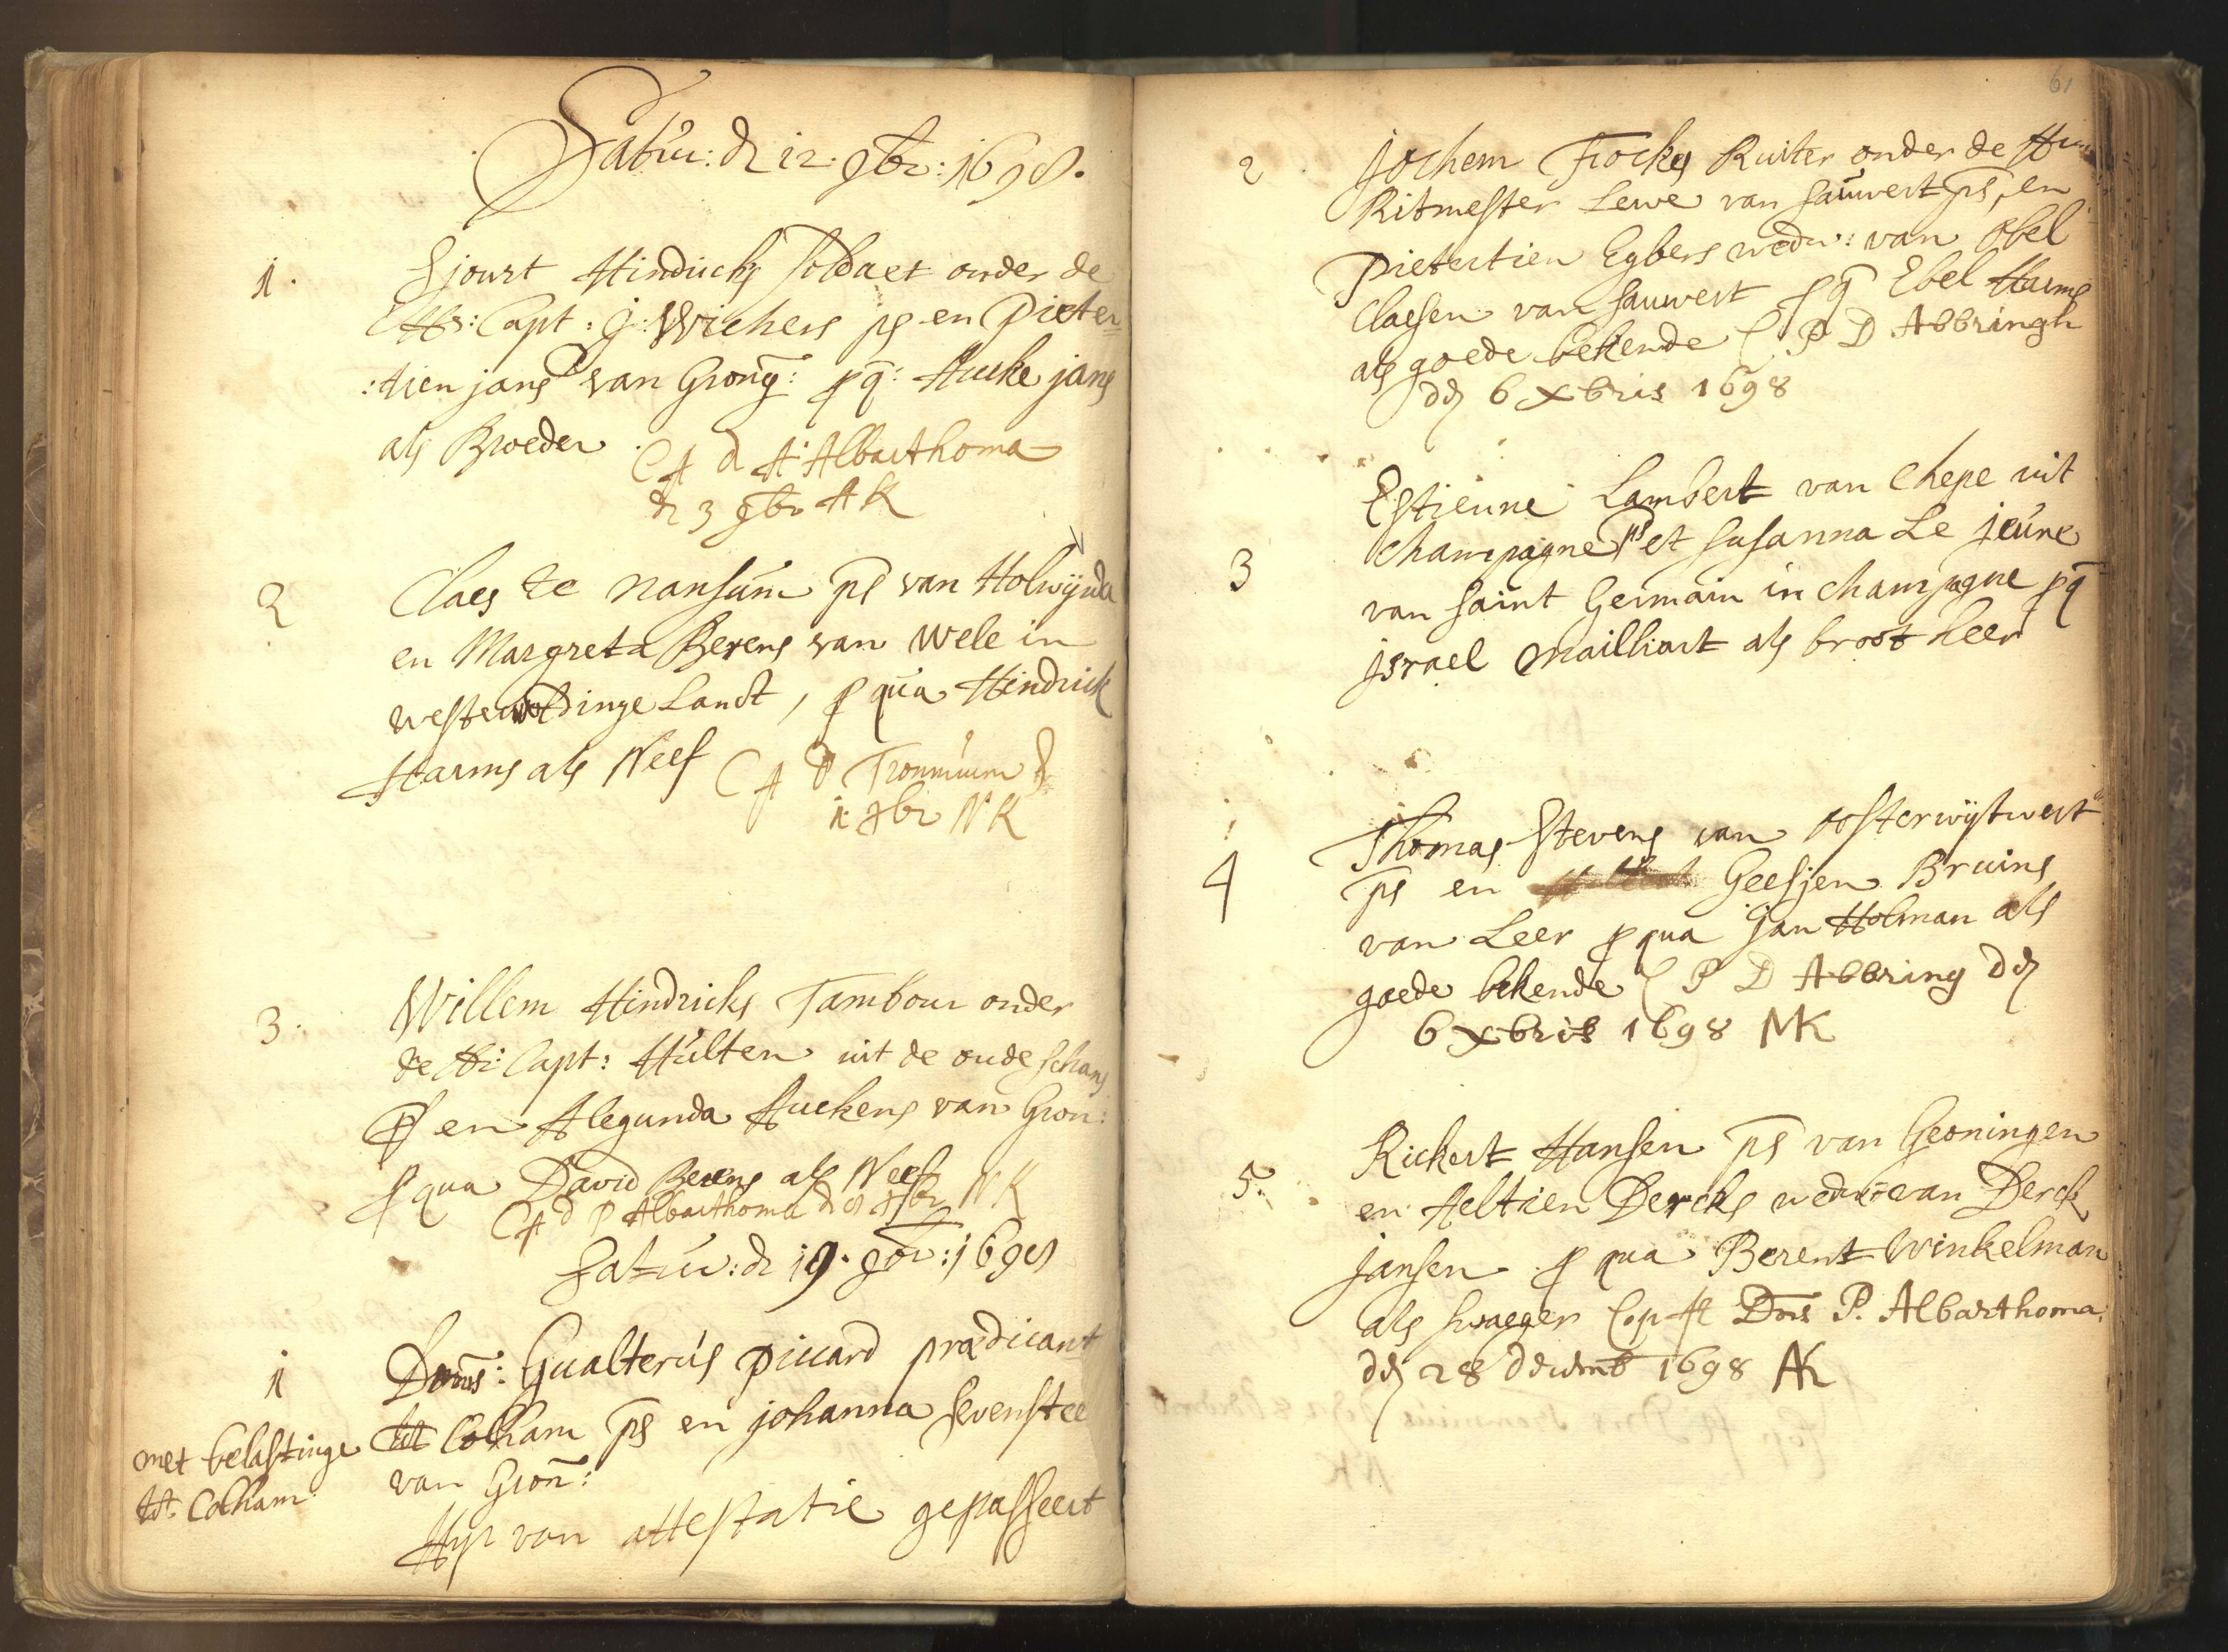 Satur: d 12. 9br: 1698.
1. Sjourt Hindricks soldaet onder de
Hr: Capt: J: Wichers ps en Pieter=
:tien jans van Grong: p q: Aueke jans
als Broeder. C A d A: Albarthoma
d 3 xbr AK
2 Claes te Nansum ps van Holwijnda
en Margreta Berens van Wele in
westerwoldinge Landt, p qua Hindrick
Harms als Neef C A D Trommium d
1 xbr NK
3. Willem Hindricks Tambour onder
de Hr: Capt: Hulten uit de oude schans
ps en Alegunda Auckens van Gron:
p qua David Berens als Neef
C A d P Albarthoma d 8 xbr NK
Satur: d 19. 9br: 1698
1 Doms: Gualterus Piccard prædicant
met belastinge tot Colham ps en johanna sevenstee
tot Colham van Gron:
Hyr van attestatie gepasseert
61
2 Jochem Fockes Ruiter onder de Hr
Ritmester Lewe van sauwert ps, en
Pietertien Egbers wedw: van Obel
Claesen van sauwert p q Ebel Harms
als goede bekende C P D Abbringh
dd 6 Xbris 1698
Estienne Lambert van Chepe uit
3 Champagne ps et susanna Le jeune
van saint Germain in Champagne p q
jsrael Mailliart als broot heer
Thomas Stevens van Oosterwijtwert
4 ps en Geesjen Bruins
van Leer p qua Jan Holman als
goede bekende C P D Abbring dd
6 Xbris 1698 NK
Rickert Hansen ps van Groningen
5. en Aeltien Dercks wedwe van Derck
jansen p qua Berent Winkelman
als swaeger Cop: A Dms P. Albarthoma
dd 28 decemb 1698 AK